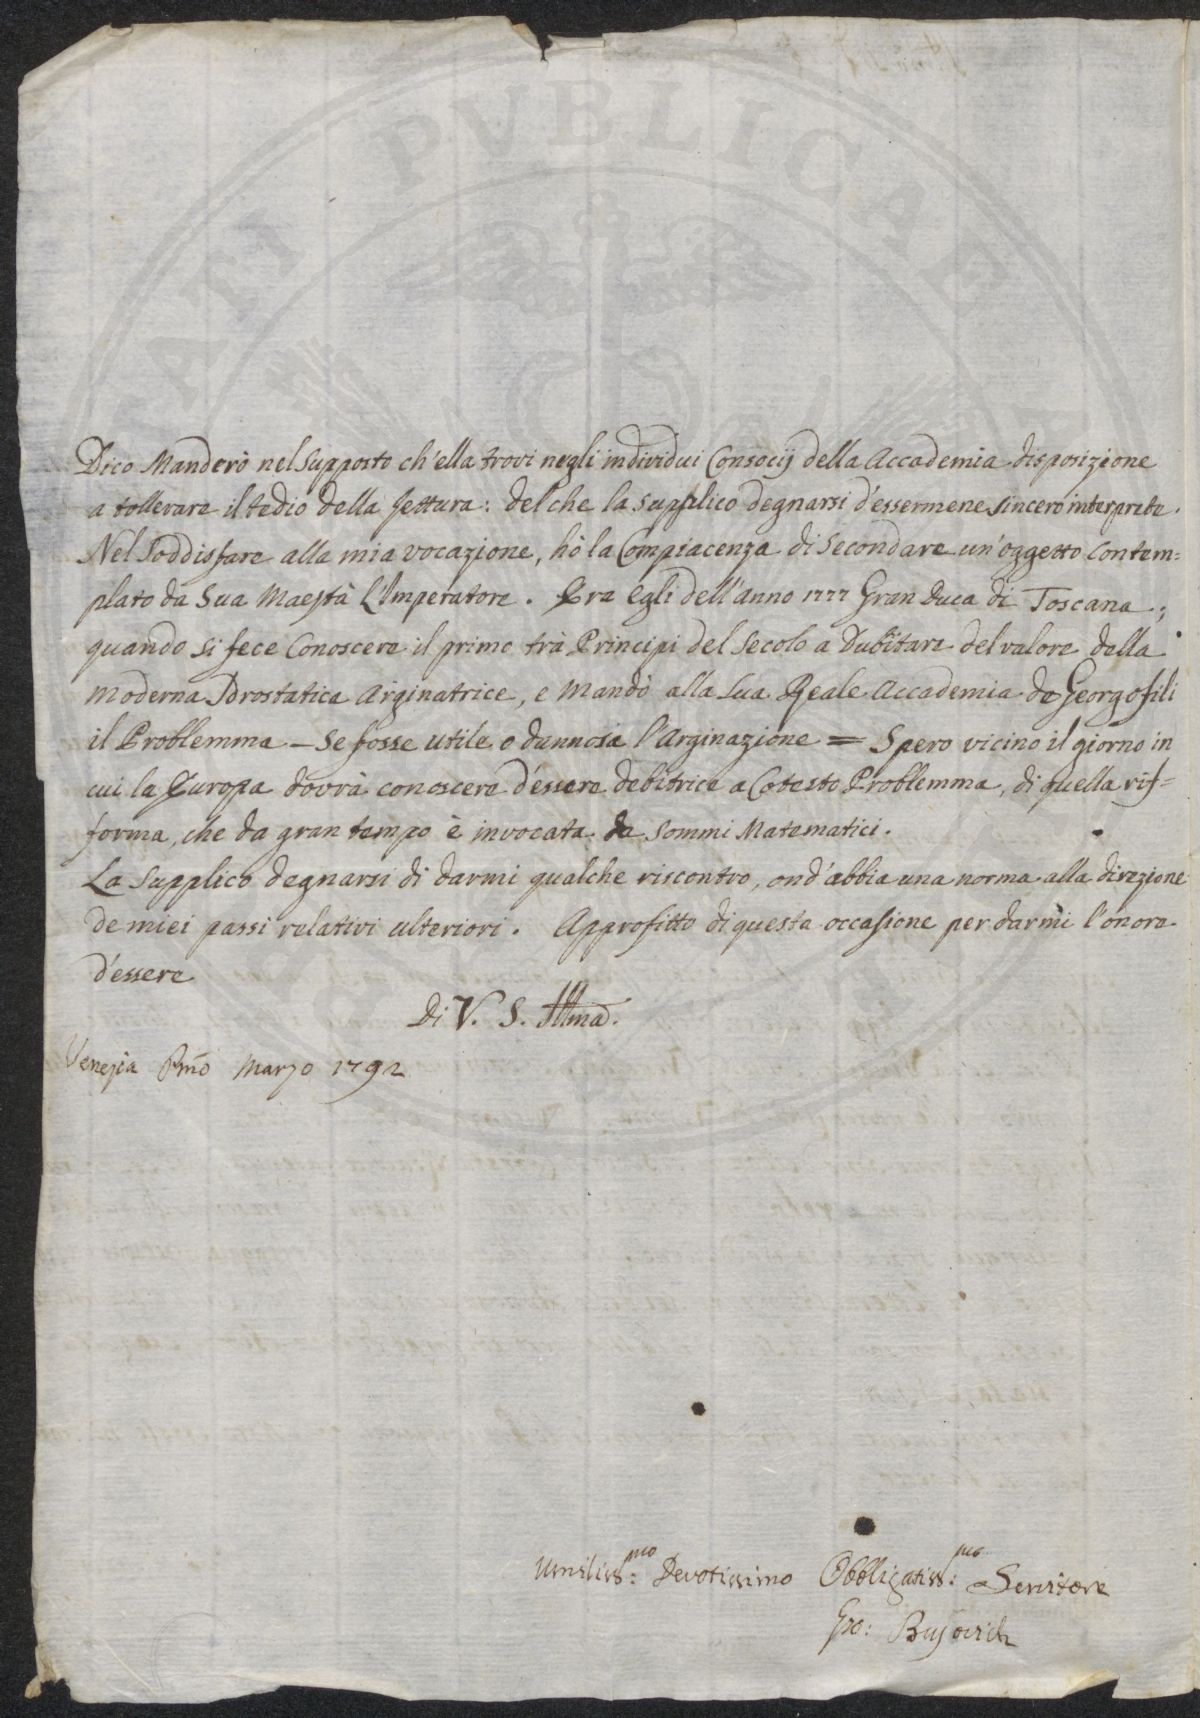 PVBLICAE
Dico Manderò nel supposto ch'ella trovi negli individui Consocij della Accademia disposizione
a tollerare il tedio della lettura: del che la supplico degnarsi d'essermene sincero interprete.
Nel soddisfare alla mia vocazione, hò la Compiacenza di secondare un'oggetto contem=
plato da Sua Maestà L'Imperatore. Era Egli dell'anno 1777 Gran Duca di Toscana;
quando si fece Conoscere il primo trà Principi del Secolo a Dubitare del valore della
Moderna Idrostatica Arginatrice, e Mandò alla sua Reale Accademia de Georgofili
il Problemma — Se fosse utile o dannosa l'Arginazione = Spero vicino il giorno in
cui la Europa dovrà conoscere d'essere debitrice a Cotesto Problemma, di quella rif=
forma, che da gran tempo è invocata da sommi Matematici.
La supplico degnarsi di darmi qualche riscontro, ond'abbia una norma alla direzione
de miei passi relativi ulteriori. Approfitto di questa occasione per darmi l'onore
d'essere
Di V. S. Illma.
Venezia Pmo Marzo 1792
Umiliss:mo Devotissimo Obbligatiss:mo Servitore
Gio: Bujovich